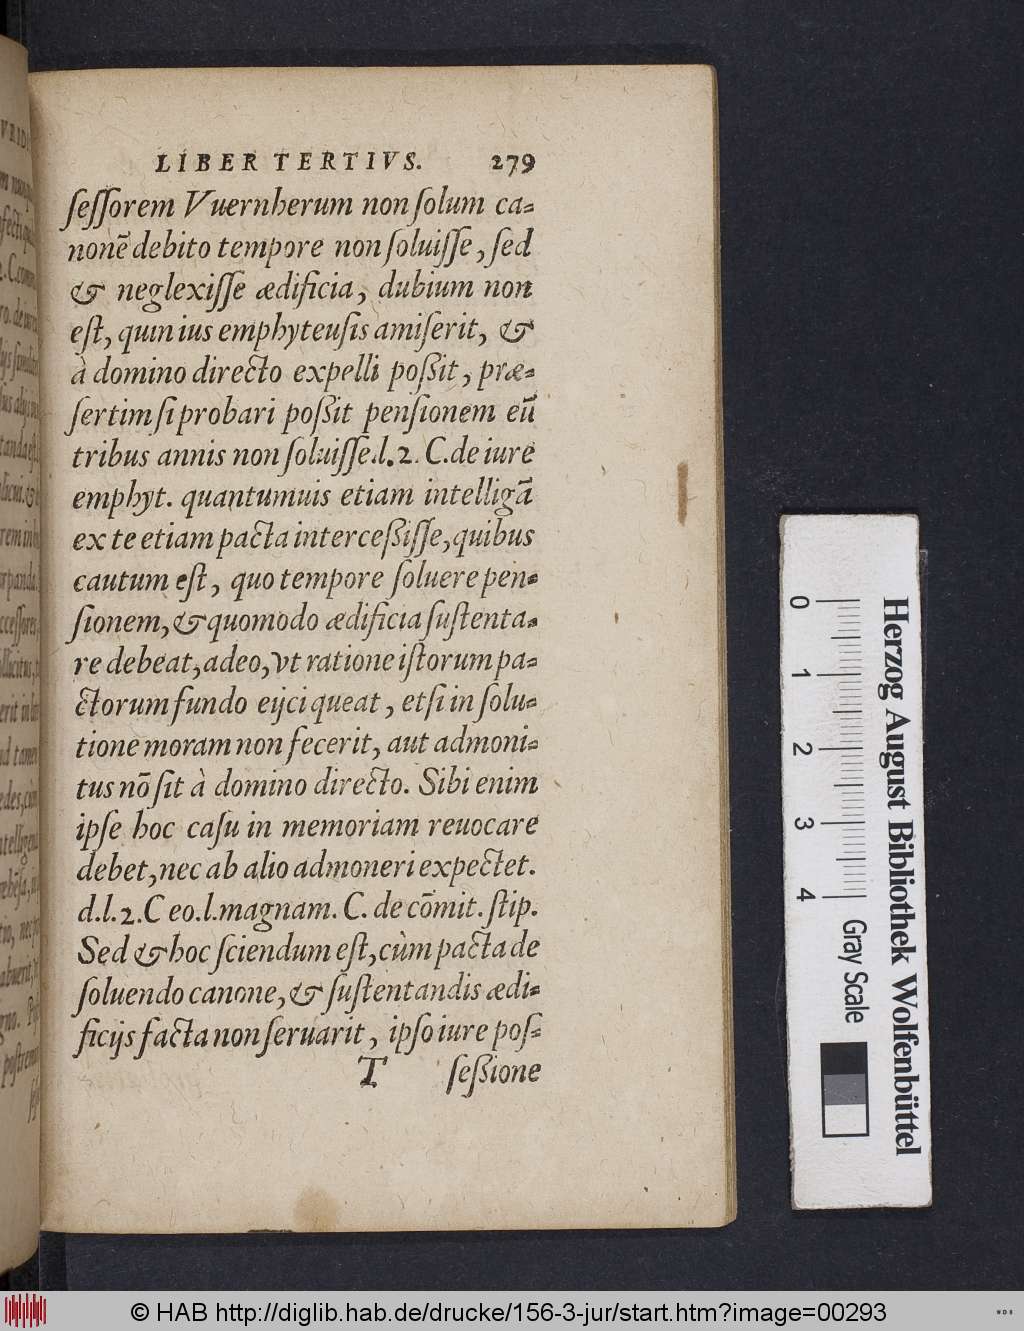 LIBER TERTIVS. 279
ſeſſorem Vuernherum non ſolum ca-
nonē debito tempore non ſoluiſſe, ſed
& neglexiſſe ædificia, dubium non
eſt, quin ius emphyteuſis amiſerit, &
à domino directo expelli poßit, præ-
ſertim ſi probari poßit penſionem eū
tribus annis non ſoluiſſe.l.2. C.de iure
emphyt. quantumuis etiam intelligā
ex te etiam pacta interceßiſſe, quibus
cautum eſt, quo tempore ſoluere pen-
ſionem, & quomodo ædificia ſuſtenta-
re debeat, adeo, vt ratione iſtorum pa-
ctorum fundo eijci queat, etſi in ſolu-
tione moram non fecerit, aut admoni-
tus nō ſit à domino directo. Sibi enim
ipſe hoc caſu in memoriam reuocare
debet, nec ab alio admoneri expectet.
d.l.2.C eo.l.magnam. C. de cōmit. ſtip.
Sed & hoc ſciendum eſt, cùm pacta de
ſoluendo canone, & ſuſtentandis ædi-
ficijs facta non ſeruarit, ipſo iure poſ-
T ſeßione
Herzog August Bibliothek Wolfenbüttel
0 1 2 3 4 Gray Scale
© HAB http://diglib.hab.de/drucke/156-3-jur/start.htm?image=00293